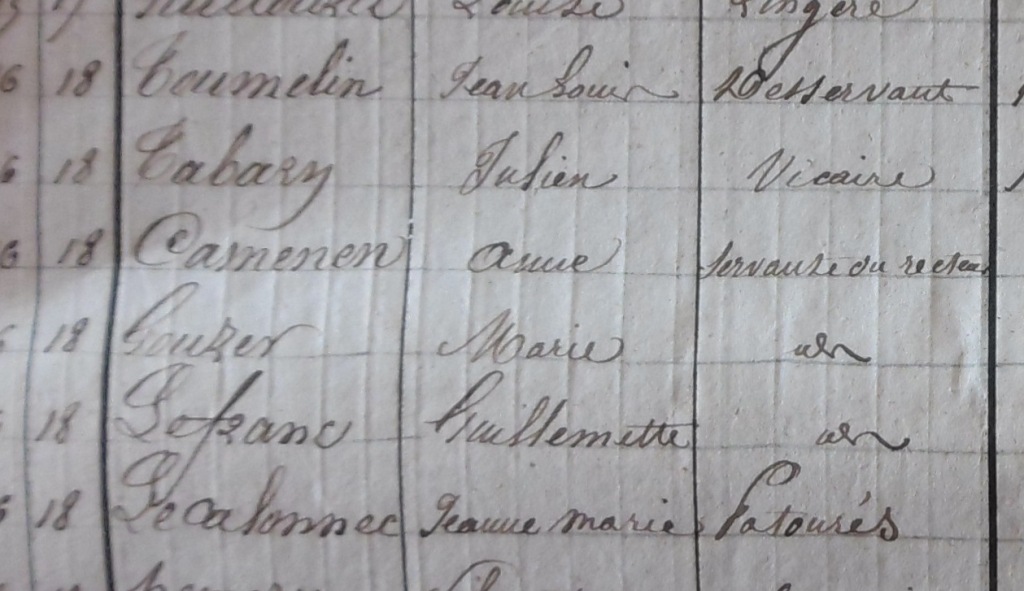 Louise Lingère
6 18 Toumelin Jean Louis Desservant
6 18 Tabary Julien Vicaire
6 18 Camenen anne servante du recteur
18 Gouzer Marie idem
18 Lefranc Guillemette idem
18 Le calonnec Jeanne marie